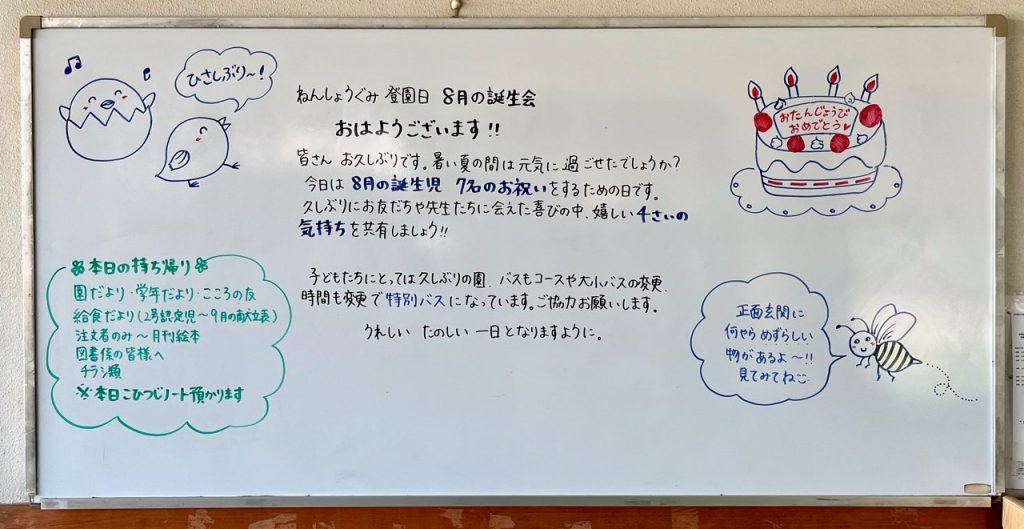 ひさしぶり〜!
ねんしょうぐみ 登園日 8月の誕生会
おはようございます!!
皆さん お久しぶりです。暑い夏の間は元気に過ごせたでしょうか?
今日は 8月の誕生児 7名のお祝いをするための日です。
久しぶりにお友だちや先生たちに会えた喜びの中、嬉しい4さいの
気持ちを共有しましょう!!
子どもたちにとっては久しぶりの園、バスもコースや大小バスの変更、
時間も変更で特別バスになっています。ご協力お願いします。
うれしい たのしい 一日となりますように。
おたんじょうび
おめでとう♥
本日の持ち帰り
園だより・学年だより・こころの友
給食だより(2号認定児〜9月の献立表)
注文者のみ〜月刊絵本
図書係の皆様へ
チラシ類
※本日こひつじノート預かります
正面玄関に
何やらめずらしい
物があるよ〜!!
見てみてね